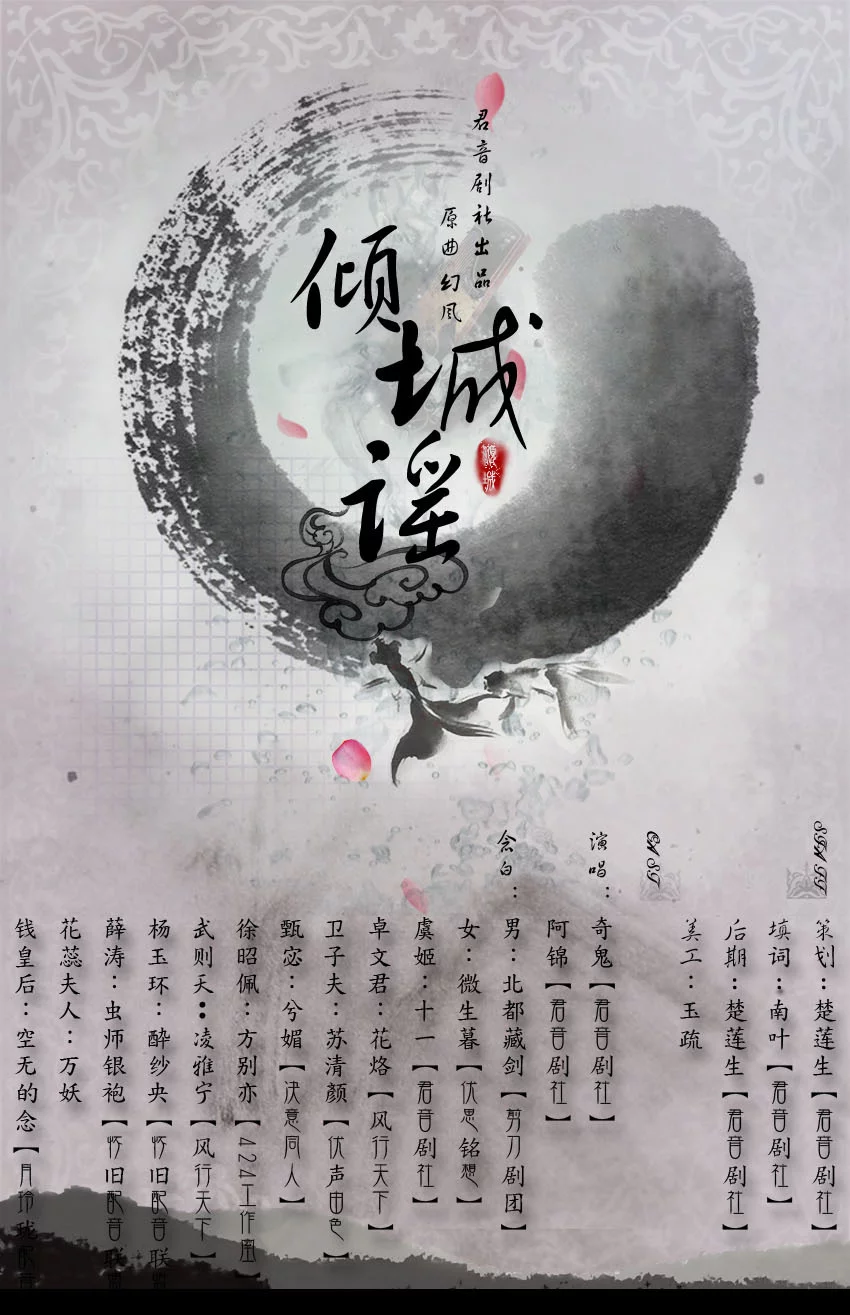 君音剧社出品
原曲幻风
倾城谣
倾城
STAFF
策划：楚莲生【君音剧社】
填词：南叶【君音剧社】
后期：楚莲生【君音剧社】
美工：玉疏
CAST
演唱：奇鬼【君音剧社】
阿锦【君音剧社】
念白：
男：北都藏剑【剪刀剧团】
女：微生暮【伏思铭想】
虞姬：十一【君音剧社】
卓文君：花烙【风行天下】
卫子夫：苏清颜【优声由色】
甄宓：兮媚【决意同人】
徐昭佩：方别亦【424工作室】
武则天：凌雅宁【风行天下】
杨玉环：醉纱央【怀旧配音联盟
薛涛：虫师银袍【怀旧配音联盟
花蕊夫人：万妖
钱皇后：空无的念【月玲珑配音